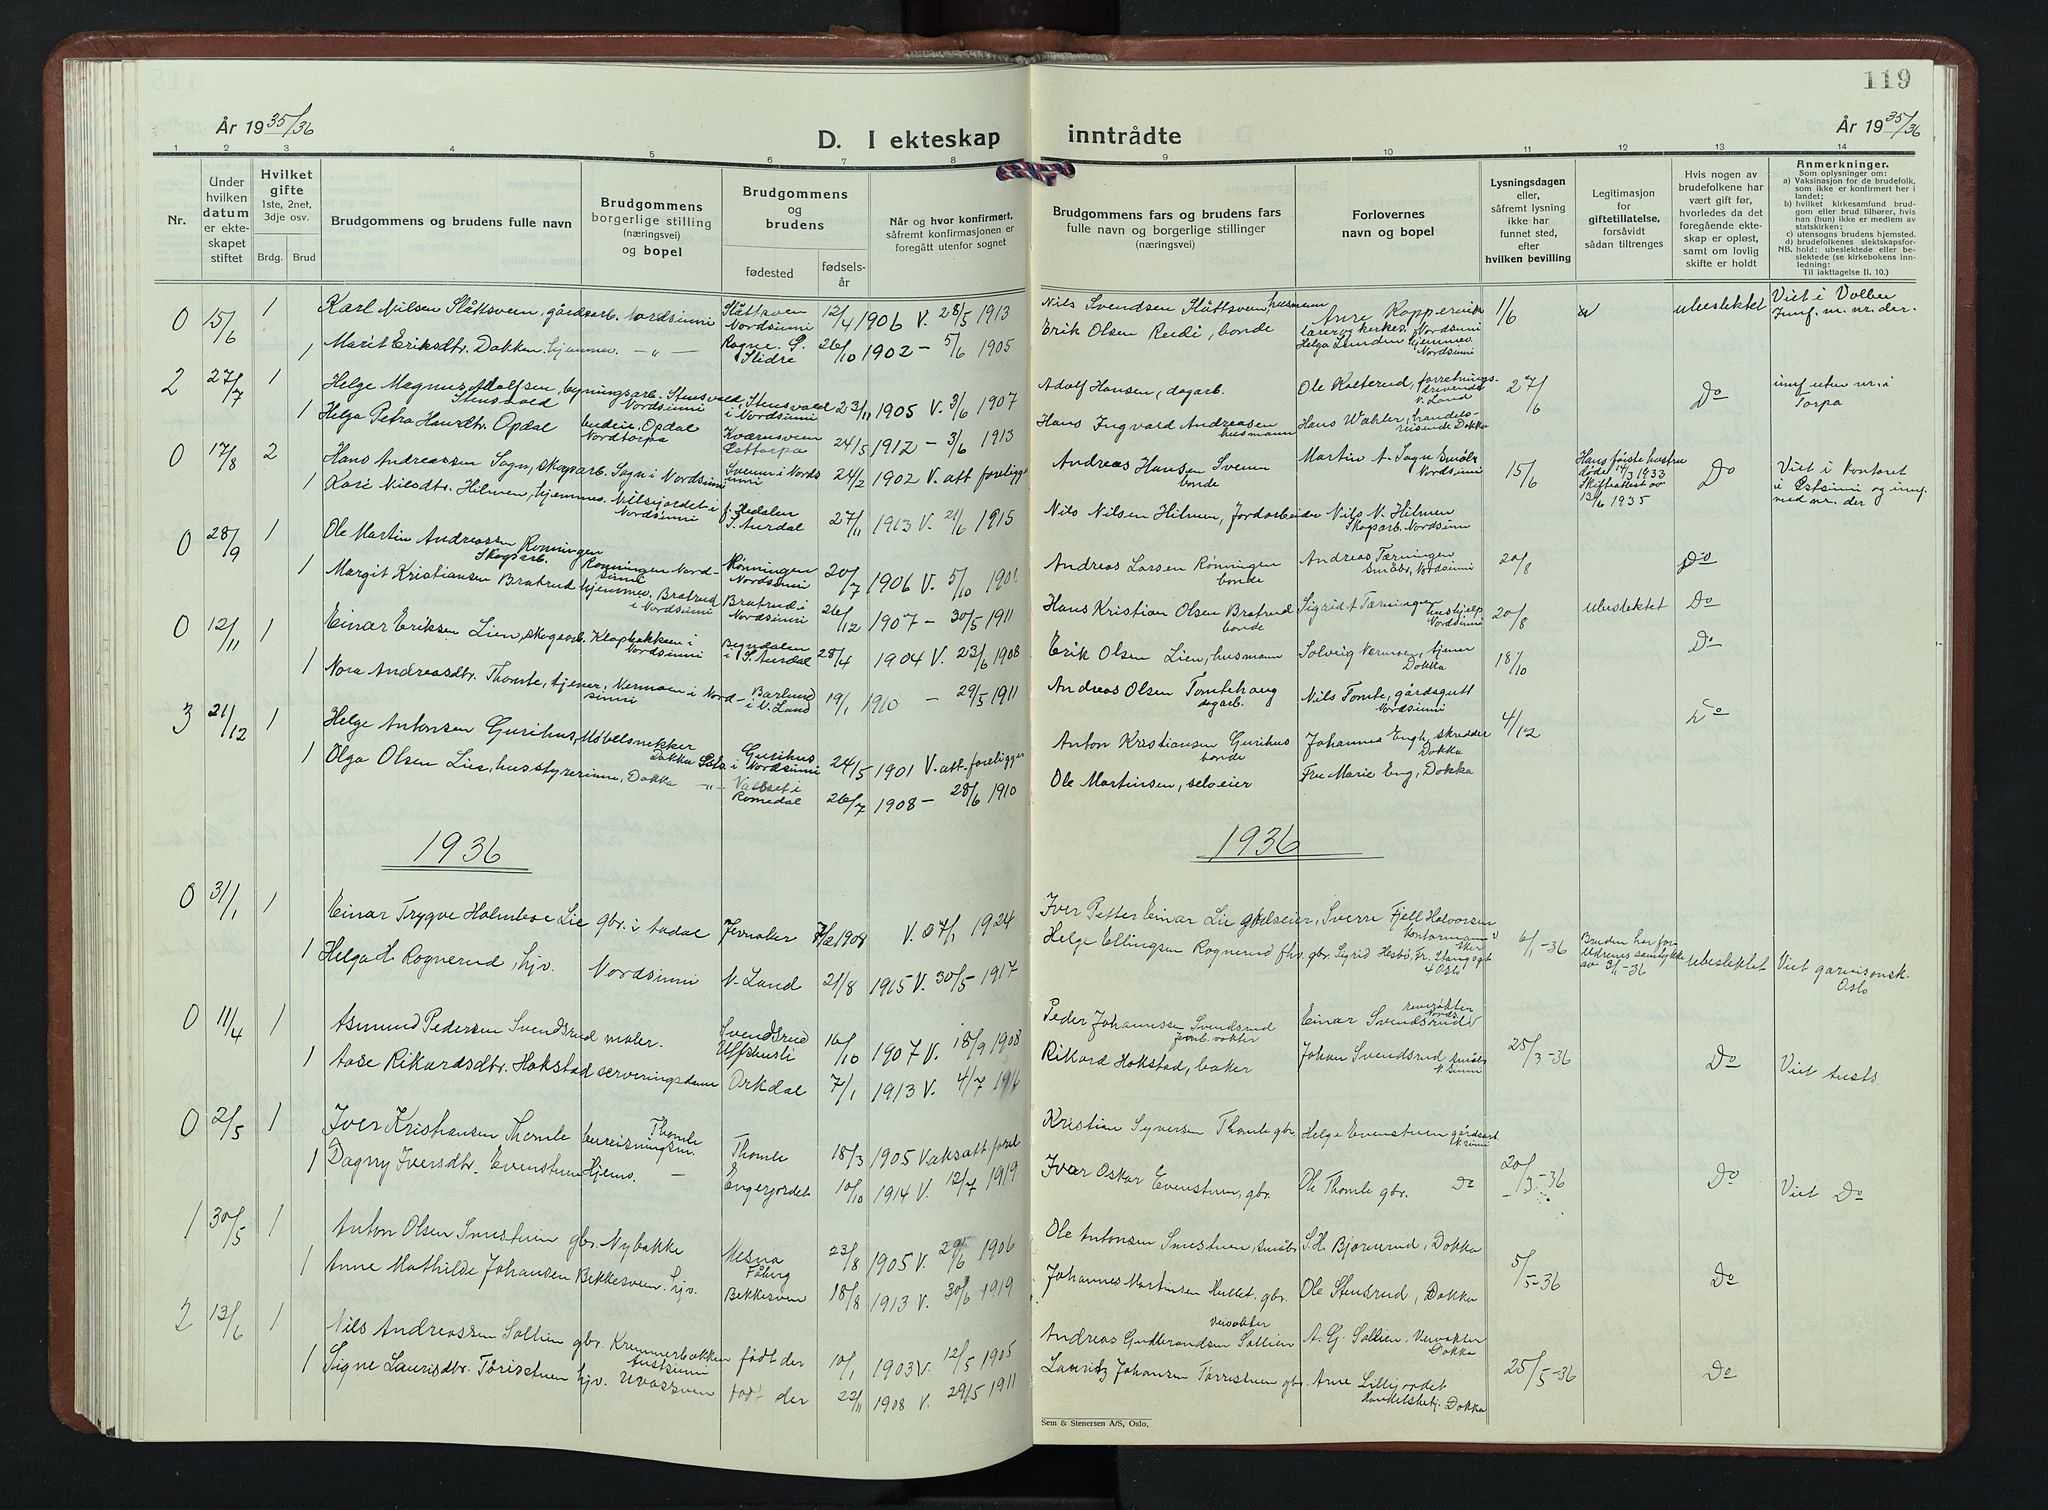 119
År 19 35/36
D. I ekteskap inntrådte
År 19 35/36
1 2 3 4 5 6 7 8 9 10 11 12 13 14
Nr.
Under hvilken datum er ekteskapet stiftet
Hvilket gifte 1ste, 2net, 3dje osv.
Brdg. Brud
Brudgommens og brudens fulle navn
Brudgommens borgerlige stilling (næringsvei) og bopel
Brudgommens og brudens
fødested
fødselsår
Når og hvor konfirmert, såfremt konfirmasjonen er foregått utenfor sognet
Brudgommens fars og brudens fars fulle navn og borgerlige stillinger (næringsvei)
Forlovernes navn og bopel
Lysningsdagen eller, såfremt lysning ikke har funnet sted, efter hvilken bevilling
Legitimasjon for giftetillatelse, forsåvidt sådan tiltrenges
Hvis nogen av brudefolkene har vært gift før, hvorledes da det foregående ekteskap er opløst, samt om lovlig skifte er holdt
Anmerkninger.
Som oplysninger om:
a) Vaksinasjon for de brudefolk, som ikke er konfirmert her i landet;
b) hvilket kirkesamfund brudgom eller brud tilhører, hvis han (hun) ikke er medlem av statskirken;
c) utensogns brudens hjemsted.
d) brudefolkenes slektskapsforhold: ubeslektede eller beslektede (se kirkebokens innledning:
NB.
Til iakttagelse II. 10.)
0 15/6 1 Karl Nilsen Slåttsveen, gårdsarb. Nordsinni Slåttsveen Nordsinni 12/4 1906 V. 28/5 1913 Nils Svendsen Slåttsveen, husmann Arne Koppervik lærer og kirkes. Nordsinni 1/6 ubeslektet Viet i Volbu
1 Marit Eriksdtr. Dokken, hjemmev. -"- Rogne. S. Slidre 26/10 1902 - 5/6 1905 Erik Olsen Reidi, bonde Helga Lunden hjemmev. Nordsinni
2 27/7 1 Helge Magnus Adolfsen Stensvold, bygningsarb. Stensvold, Nordsinni Stensvold i Nordsinni 23/11 1905 V. 3/6 1907 Adolf Hansen, dagarb. Ole Kolterud, forretningsdrivende N. Land 27/6 Do innf. uten nr. i Torpa
1 Helga Petra Hansdtr. Opdal budeie, Opdal Nordtorpa Kværnsveen Østtorpa 24/5 1912 - 3/6 1913 Hans Ingvald Andreasen husmann Hans Wahler, handelsreisende Dokka
0 17/8 2 Hans Andreassen Sogn, skogsarb. Sogn i Nordsinni Svenni Nordsinni 24/2 1902 V. att foreligger Andreas Hansen Svenn bonde Martin A. Sogn Småbr. Nordsinni 15/6 Hans første hustru døde 14/3 1933 Skifteattest av 13/6 1935 Do Viet i kontoret i Østsinni og innf. med nr. der
1 Kari Nilsdtr. Hilmen, hjemmev. Nilsjordet i Nordsinni f. Hedalen S. Aurdal 27/11 1913 V. 21/6 1915 Nils Nilsen Hilmen, Jordarbeider Nils N. Hilmen Skogsarb. Nordsinni
0 28/9 1 Ole Martin Andreassen Rønningen Skogsarb. Rønningen Nordsinni Rønningen Nordsinni 20/7 1906 V. 5/10 Andreas Larsen Rønningen bonde Andreas Tærningen småbr. Nordsinni 20/8 Do
1 Margit Kristiansen Bratrud hjemmev. Bratrud i Nordsinni Bratrud i Nordsinni 26/12 1907 - 30/5 1911 Hans Kristian Olsen Bratrud bonde Sigrid A Tærningen hushjelp Nordsinni 20/8 ubeslektet Do
0 12/11 1 Einar Eriksen Lien, skogsarb. Klopbakken i Nordsinni Begndalen i S. Aurdal 28/4 1904 V. 23/6 1908 Erik Olsen Lien, husmann Solveig Nermoen, tjener Dokka 18/10 Do
1 Nora Andreasdtr. Thomte, tjener, Nermoen i Nordsinni Barlund i N. Land 19/1 1910 - 29/5 1911 Andreas Olsen Tomtehaug dagarb. Nils Tomte, gårdsgutt Nordsinni
3 21/12 1 Helge Antonsen Gurihus, Møbelsnekker Dokka Gurihus i Nordsinni 24/5 1901 V. att. foreligger Anton Kristiansen Gurihus bonde Johannes Engh, skredder Dokka 4/12 Do
1 Olga Olsen Lie, husstyrerinne, Dokka -"- Vallset i Romedal 26/7 1908 - 28/6 1910 Ole Martinsen, selveier Fru Marie Eng, Dokka
1936 1936
0 31/1 1 Einar Trygve Holmboe Lie gbr. i Aadal Jevnaker 7/2 1908 V. 07/1 1924 Iver Petter Einar Lie godseier, Sverre Fjell Halvorsen kontormann Aker 6/1-36 Bruden har foreldrenes samtykke av 3/1-36 ubeslektet Viet garnisonsk. Oslo
1 Helga H. Rognerud, hjv. Nordsinni N. Land 21/8 1915 V. 30/5 1917 Helge Ellingsen Rognerud fhv. gbr. Sigrid Hesbø, Fr. Stangsgt 4 Oslo
0 11/4 1 Asmund Pedersen Svendsrud maler. Svendsrud 10/10 1907 V. 18/9 1908 Peder Johannessen Svendsrud Jernb. vokter Einar Svendsrud 25/3-36 Do Viet Austs.
1 Aase Rikardsdtr. Hokstad serveringsdame Orkdal 7/1 1913 V. 4/7 1916 Rikard Hokstad, baker Johan Svendsrud småbr. N Sinni
0 2/5 1 Iver Kristiansen Thomle bureisningsm. Thomle Thomle 18/3 1905 Vaksatt. forel Kristian Syversen Thomle gbr. Helge Evenstuen gårdsarb N. sinni 20/3-36 Do Viet Do
1 Dagny Iversdtr. Evenstuen Hjemv. - Engerjordet 10/10 1914 V. 12/7 1919 Ivar Oskar Evenstuen, gbr. Ole Thomle gbr. Do
1 30/5 1 Anton Olsen Smestuen gbr. Nybakke Mesna Fåberg 23/8 1905 V. 29/6 1906 Ole Antonsen Smestuen, småbr. S. H. Bjørnerud, Dokka 5/5-36 Do
1 Anne Mathilde Johansen Bekkesveen. hjv. Bekkesveen 18/8 1913 V. 30/6 1919 Johannes Martinsen Hullet. gbr. Ole Stensrud, Dokka
2 13/6 1 Nils Andreassen Sollien gbr. Kremmerbakken Austsinni født der 10/1 1903 V. 12/5 1905 Andreas Gudbrandsen Sollien Veivokter A. G. Sollien. Veivokter Dokka 25/5-36 Do
1 Signe Laurisdtr. Tøristuen hjv. Uvassveen født der 22/11 1908 V. 29/5 1911 Lauritz Johansen Tørristuen gbr. Arne Lillejordet Handelsbetj. Dokka
Sem & Stenersen A/S, Oslo.